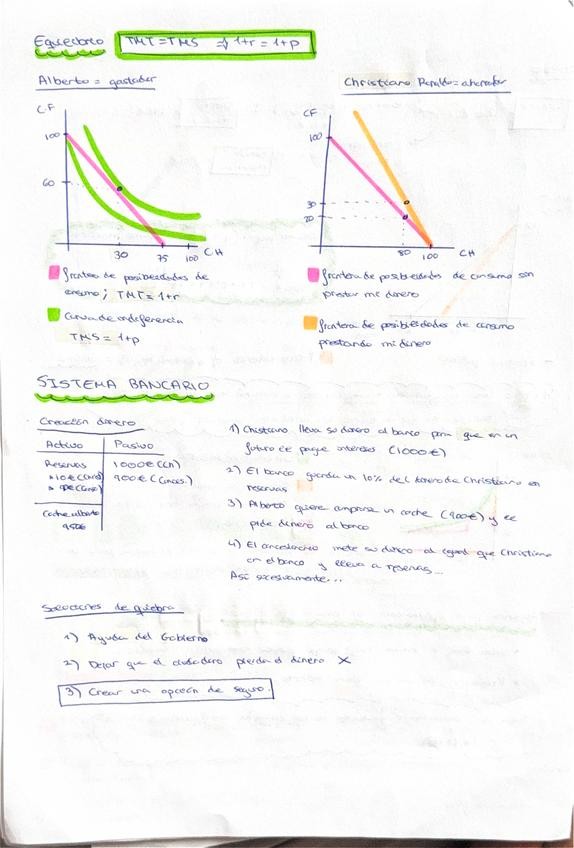 Equilibrio TMT = TMS ⇒ 1+r = 1+p
Alberto = gastador
Christiano Ronaldo = ahorrador
CF
100
60
30 75 100 CH
CF
100
30
20
80 100 CH
frontera de posibilidades de
consumo; TMT = 1+r
Curva de indiferencia
TMS = 1+p
frontera de posibilidades de consumo sin
prestar mi dinero
frontera de posibilidades de consumo
prestando mi dinero
SISTEMA BANCARIO
Creación dinero
Activo Pasivo
Reservas 1000€ (Ch)
900€ (conces.)
Coche Alberto
1) Christiano lleva su dinero al banco para que en un
futuro le pague intereses (1000€)
2) El banco guarda un 10% del dinero de Christiano en
reservas
3) Alberto quiere comprarse un coche (900€) y le
pide dinero al banco
4) El concesionario mete su dinero al igual que Christiano
en el banco y lleva a reservas...
Así sucesivamente...
Soluciones de quiebra
1) Ayuda del Gobierno
2) Dejar que el ciudadano pierda el dinero X
3) Crear una opción de seguro.